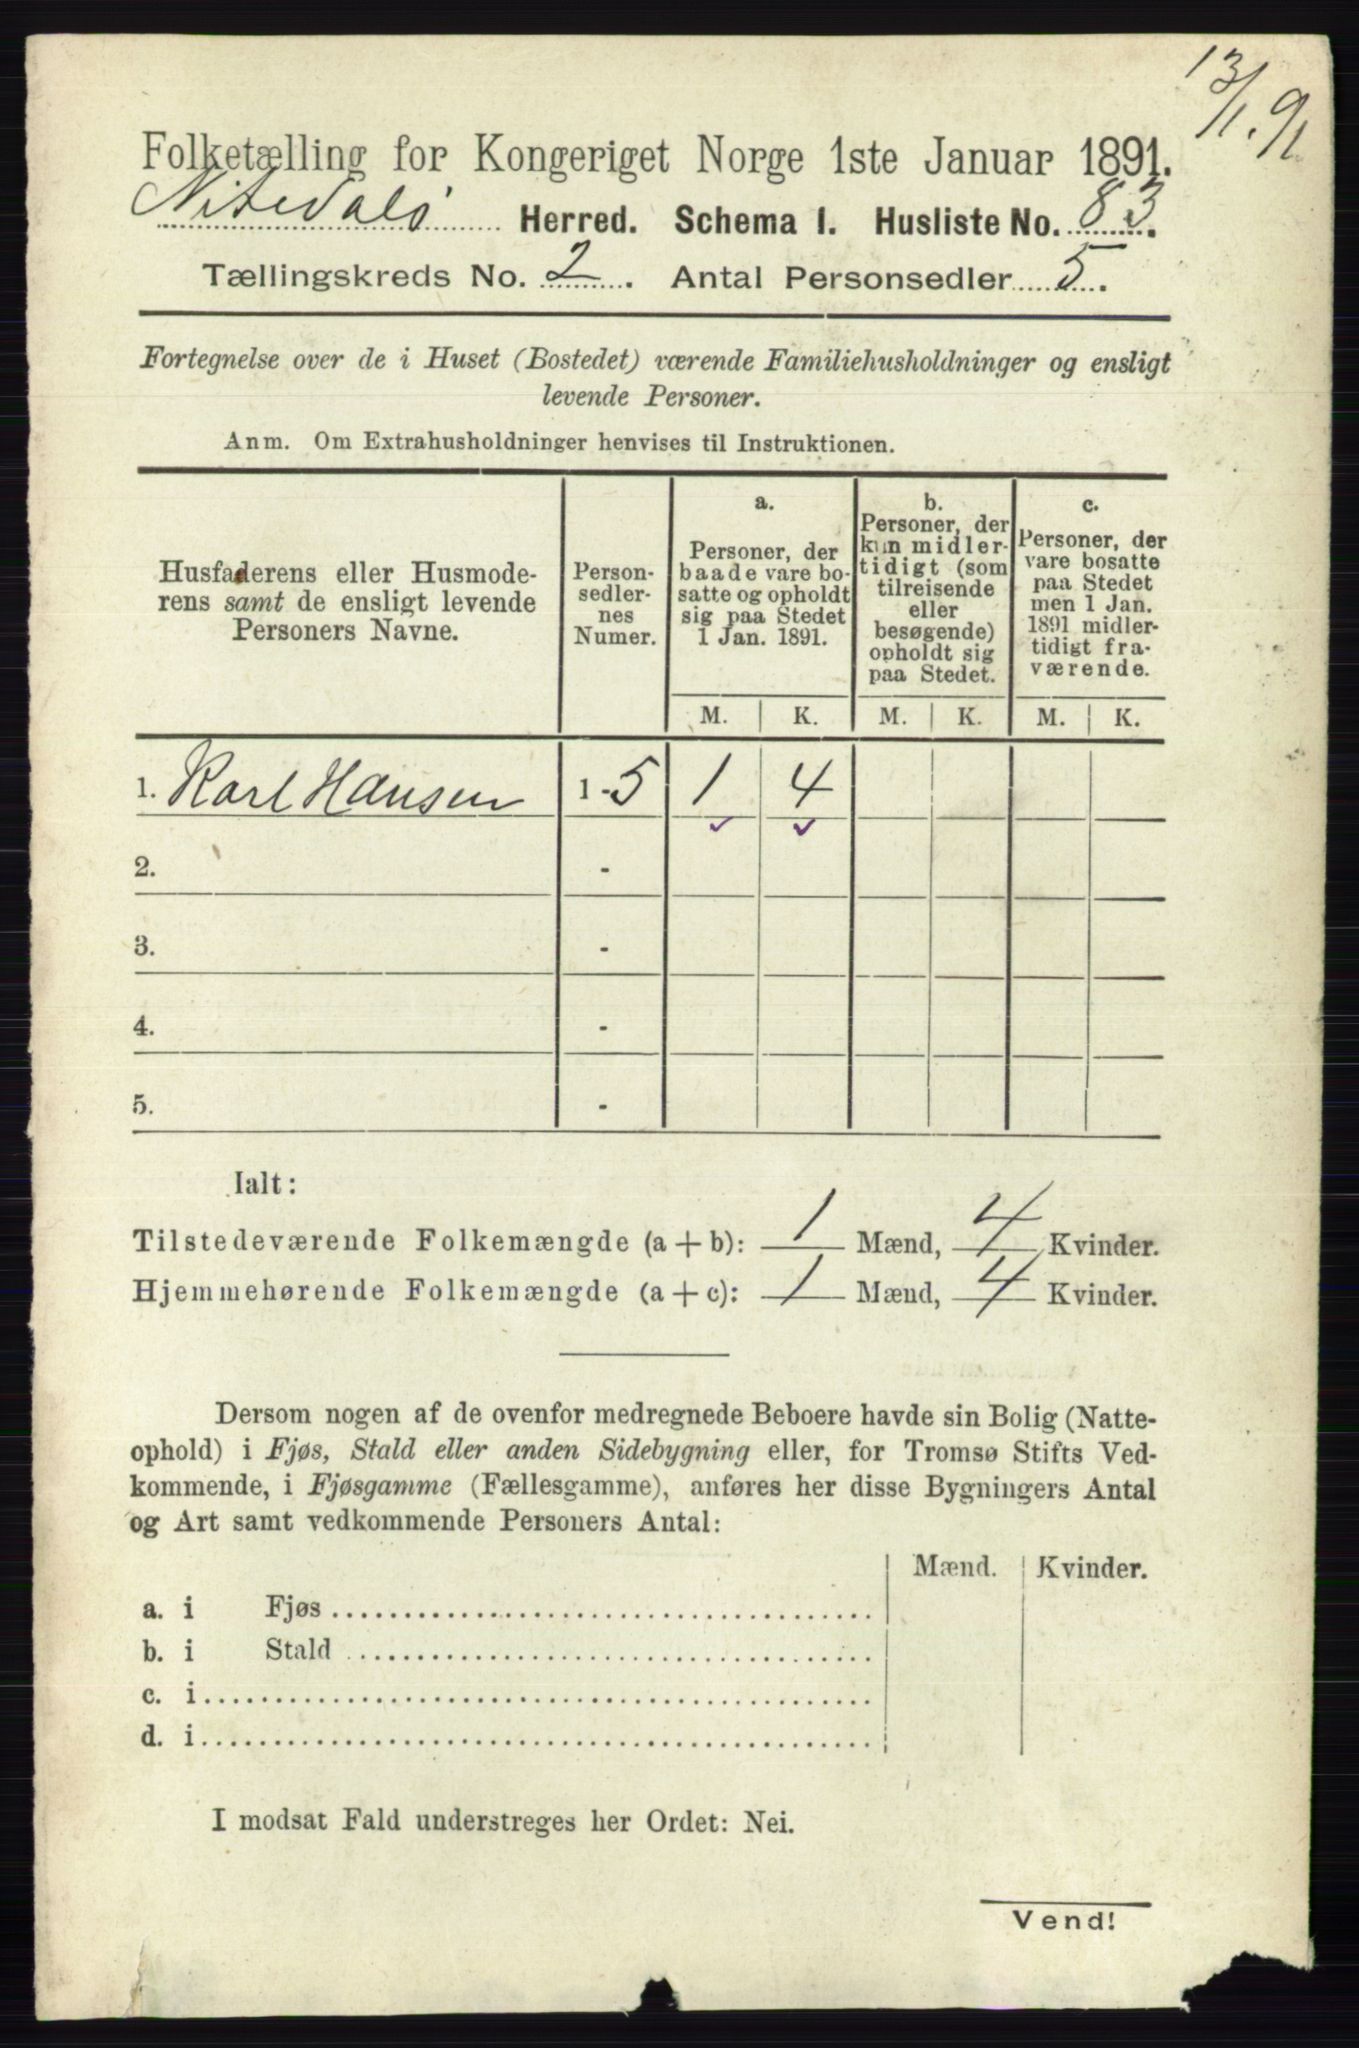 13/1.91
Folketælling for Kongeriget Norge 1ste Januar 1891.
Nitedals Herred. Schema I. Husliste No. 83.
Tællingskreds No. 2. Antal Personsedler 5.
Fortegnelse over de i Huset (Bostedet) værende Familiehusholdninger og ensligt
levende Personer.
Anm. Om Extrahusholdninger henvises til Instruktionen.
Husfaderens eller Husmode-
rens samt de ensligt levende
Personers Navne.
Person-
sedler-
nes
Numer.
a.
Personer, der
baade vare bo-
satte og opholdt
sig paa Stedet
1 Jan. 1891.
b.
Personer, der
kun midler-
tidigt (som
tilreisende
eller
besøgende)
opholdt sig
paa Stedet.
c.
Personer, der
vare bosatte
paa Stedet
men 1 Jan.
1891 midler-
tidigt fra-
værende.
M. K. M. K. M. K.
1. Karl Hansen 1-5 1 4
2. -
3. -
4. -
5. -
Ialt:
Tilstedeværende Folkemængde (a + b): 1 Mænd, 4 Kvinder.
Hjemmehørende Folkemængde (a + c): 1 Mænd, 4 Kvinder.
Dersom nogen af de ovenfor medregnede Beboere havde sin Bolig (Natte-
ophold) i Fjøs, Stald eller anden Sidebygning eller, for Tromsø Stifts Ved-
kommende, i Fjøsgamme (Fællesgamme), anføres her disse Bygningers Antal
og Art samt vedkommende Personers Antal:
Mænd. Kvinder.
a. i Fjøs
b. i Stald
c. i
d. i
I modsat Fald understreges her Ordet: Nei.
Vend!